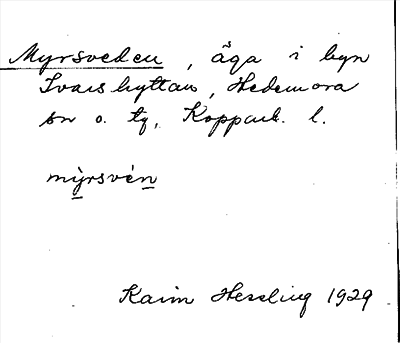 Myrsveden, äga i byn
Ivarshyttan, Hedemora
sn o. tg, Kopparb. l.
mỳrsvén
Karin Hessling 1929